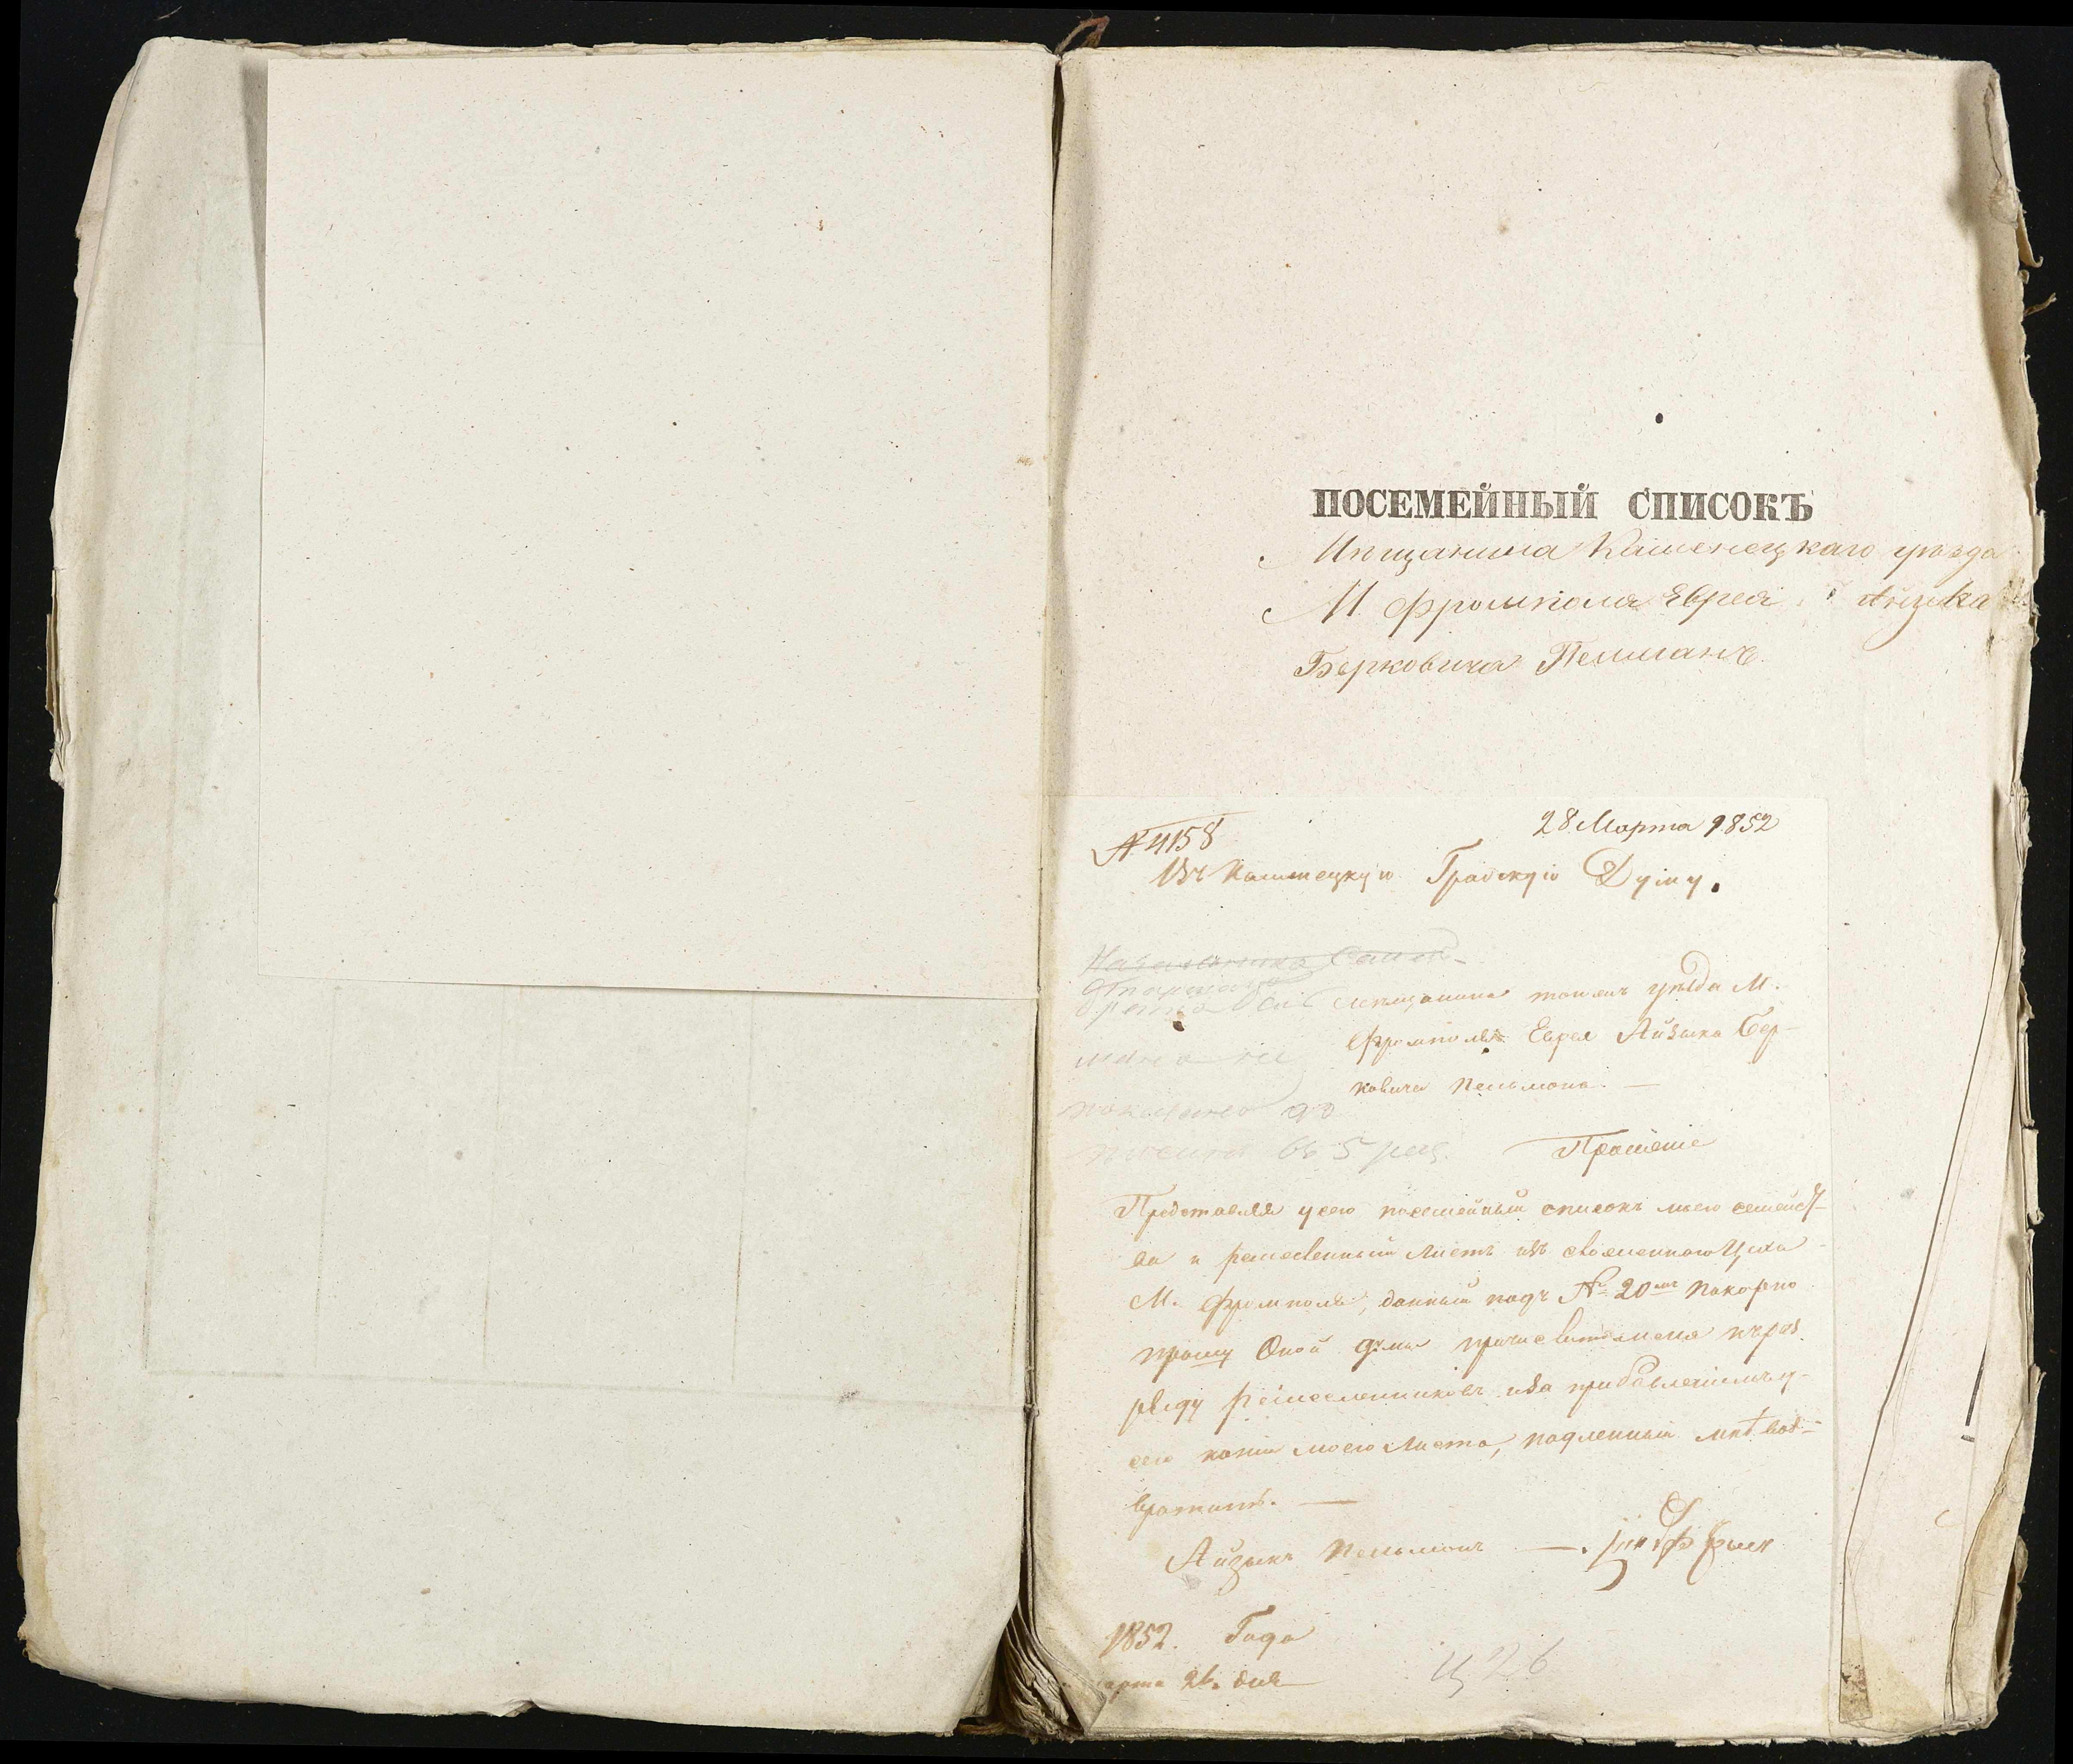 ПОСЕМЕЙНЫЙ СПИСОКЪ
Мѣщанина Каменецкаго уѣзда
М. Фрамполя Еврея Айзика
Берковича Пельманъ.
№ 4158
28 Марта 1852
Въ Каменецкую Градскую Думу.
мѣщанина тогожъ уѣзда М.
Фрамполя Еврея Айзыка Бер-
ковича Пельмана. —
въ 5 рец.
Прошеніе
Представляя у сего посемейный списокъ моего семейст-
ва и ремесленный листъ изъ Цеха
М. Фрамполя, данный подъ № 20мъ покорно
прошу Оной думы причислить меня къ раз-
ряду ремесленниковъ и за прибавленіемъ у
сего копіи моего листа, подленный мнѣ воз-
вратить. —
Айзыкъ Пельманъ —.
1852. Года
Марта 26. дня